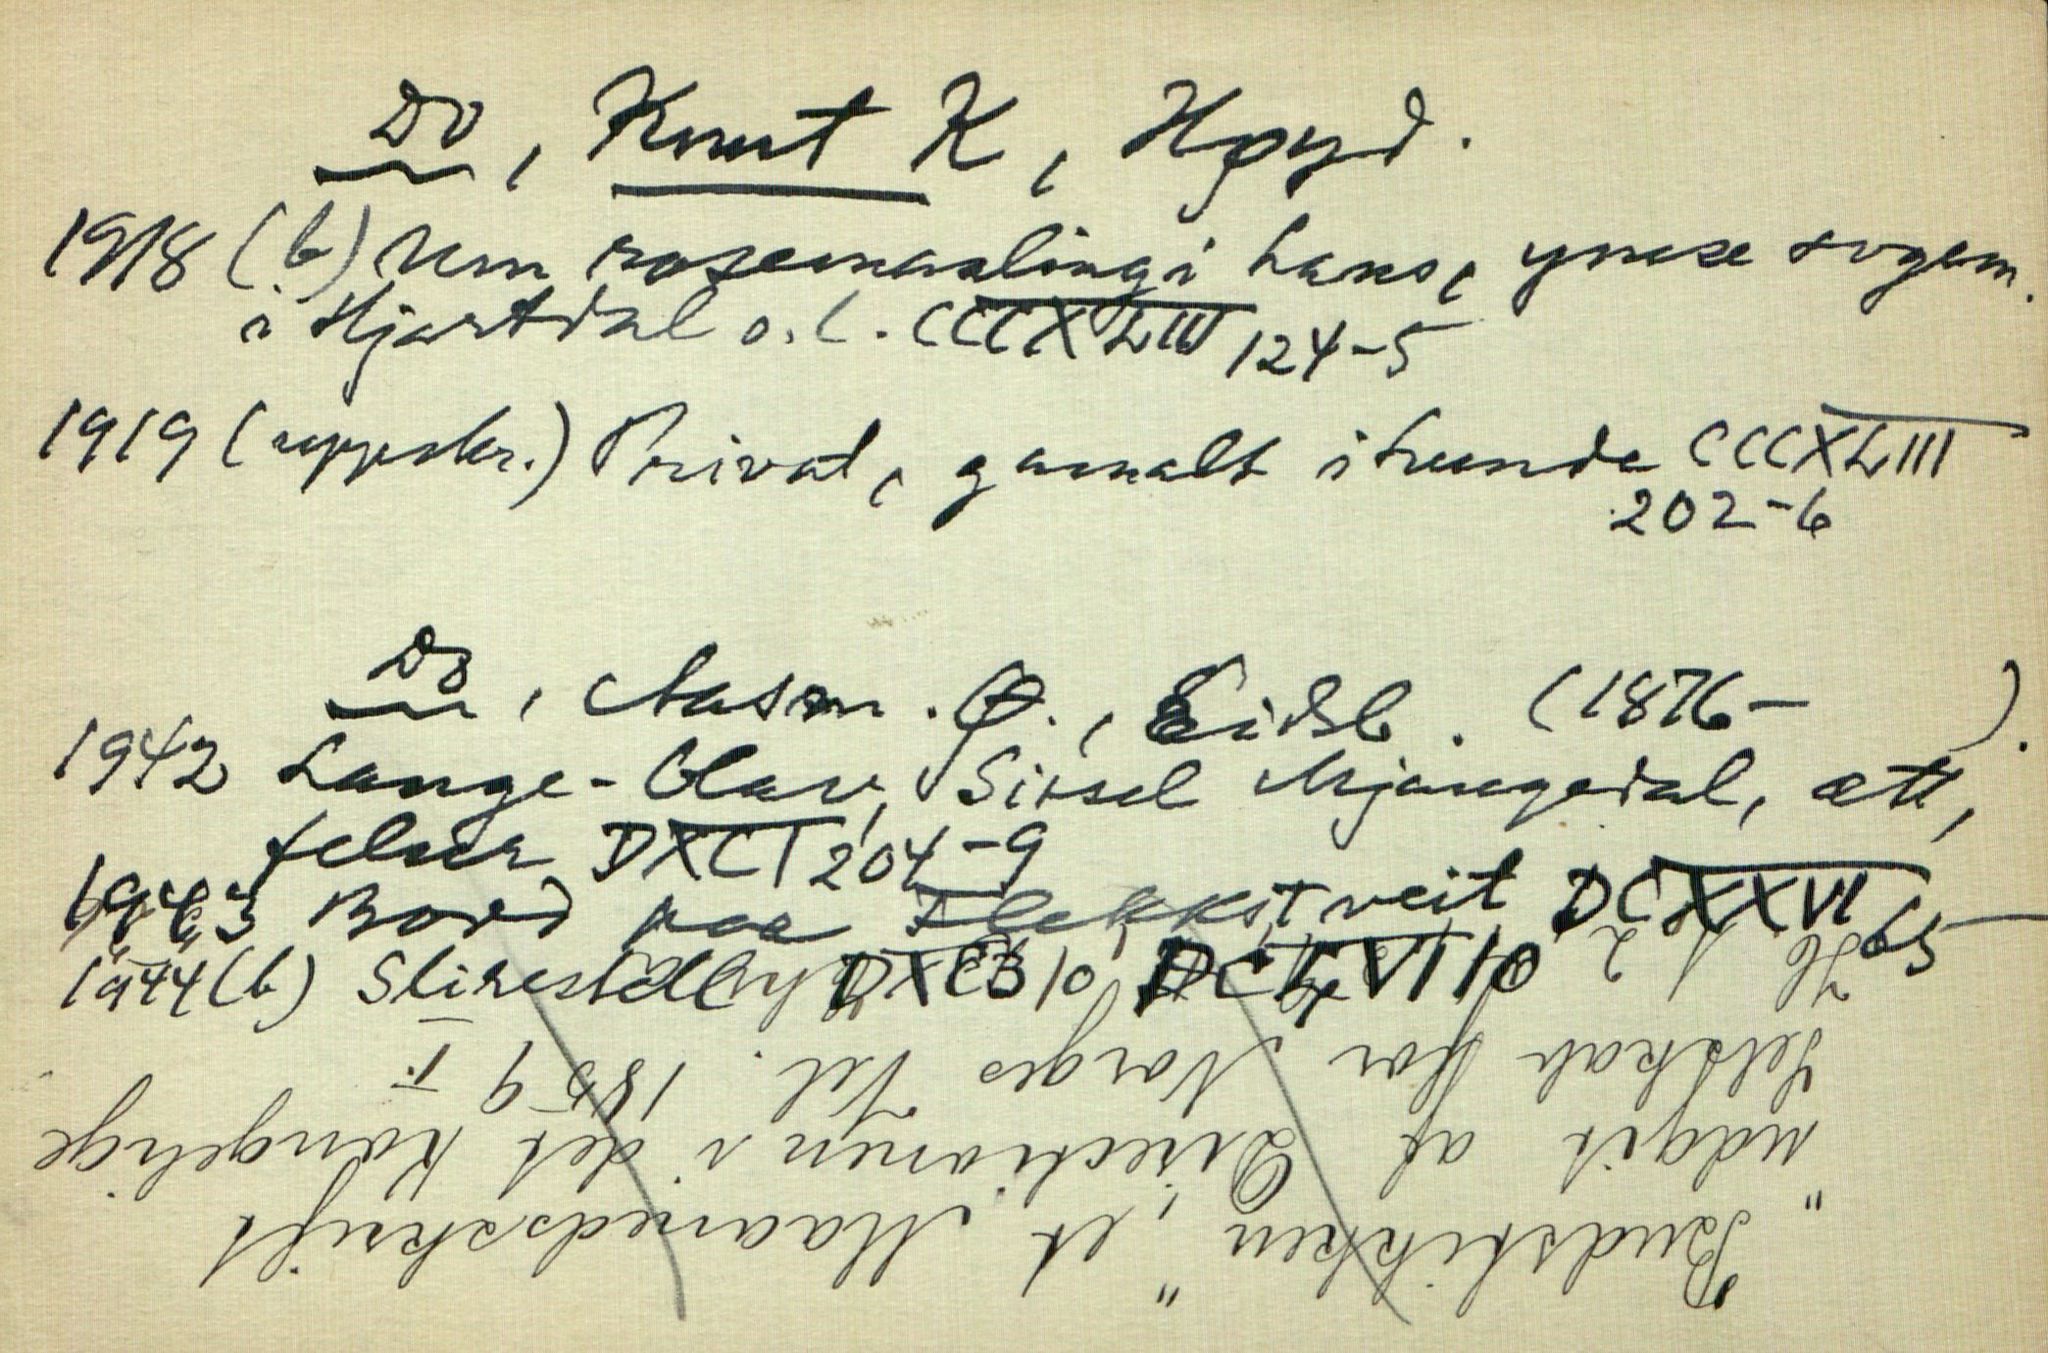 Do, Knut K, Høyd.
1918 (b) Um rosemaaling i hans, ymse sogem.
i Hjartdal o.l. CCCXLIII 124-5
1919 (uppskr.) Privat, gamalt ihunde CCCXLIII
202-6
Do, Aasm. Ø., Eidsb. (1876- ).
1942 Lange-Olav, Sissel Mjaugedal, ætt,
felner DXCI 204-9
1943 Bord paa Flekkstveit DCXXVI 65-
1944 (b) Slirestdl DXCIII 10
"Budstikken", et Maanedsskrift
udgit af Directionen i det kongelige
Selskab for Norges Vel. 1859 I